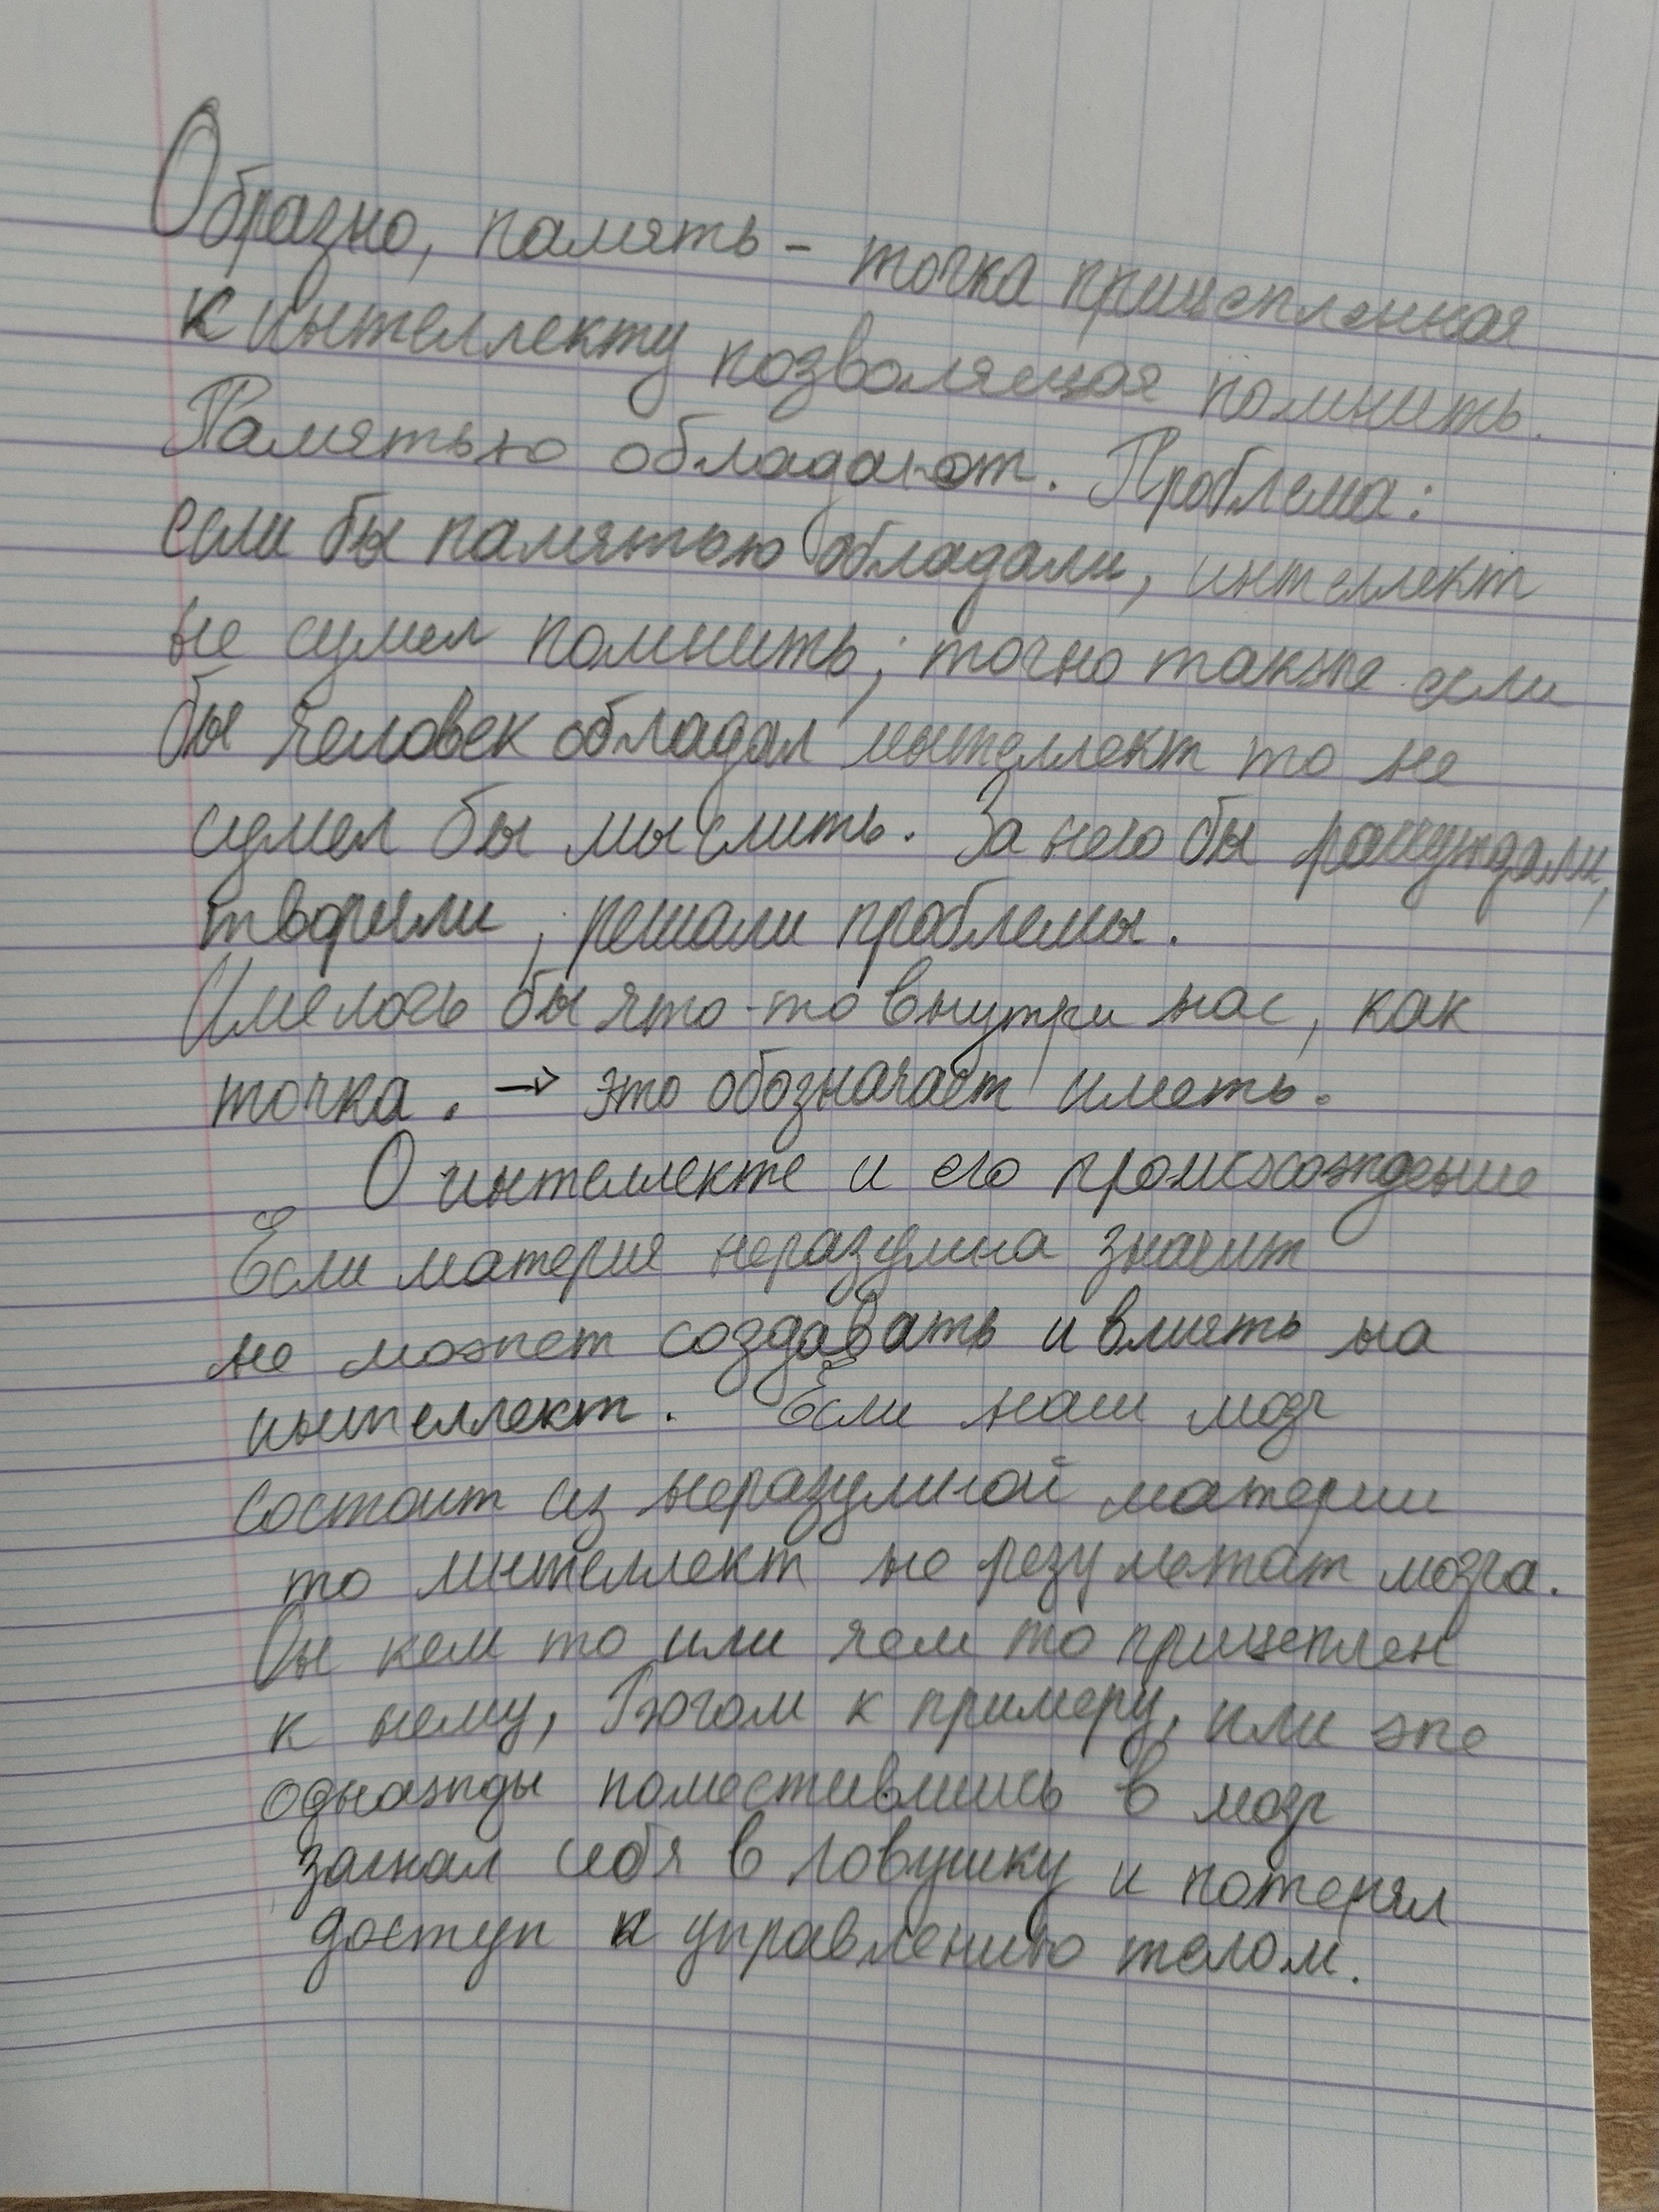 Образно, память – точка прицепленная
к интеллекту позволяющая помнить.
Памятью обладают. Проблема:
если бы памятью обладали, интеллект
не сумел помнить; точно также если
бы человек обладал интеллект то не
сумел бы мыслить. За него бы рассуждали,
творили, решали проблемы.
Имелось бы что-то внутри нас, как
точка. → это обозначает иметь.
О интеллекте и его происхождение
Если материя неразумна значит
не может создавать и влиять на
интеллект. Если наш мозг
состоит из неразумной материи
то интеллект не результат мозга.
Он кем то или чем то прицеплен
к нему, Богом к примеру, или же
однажды поместившись в мозг
загнал себя в ловушку и потерял
доступ к управлению телом.